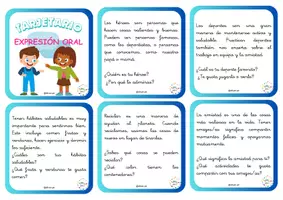 TARJETARIO
EXPRESIÓN ORAL
Los héroes son personas que
hacen cosas valientes y buenas.
Pueden ser personas famosas,
como los deportistas, o personas
que conocemos, como nuestra
mamá o papá.
¿Quién es tu héroe?
¿Por qué lo admiras?
Los deportes son una gran
manera de mantenernos activos y
saludables. Practicar deportes
también nos enseña sobre el
trabajo en equipo y la amistad.
¿Cuál es tu deporte favorito?
¿Te gusta jugarlo o verlo?
Tener hábitos saludables es muy
importante para sentirnos bien.
Esto incluye comer frutas y
verduras, hacer ejercicio y dormir
lo suficiente.
¿Cuáles son tus hábitos
saludables?
¿Qué frutas y verduras te gusta
comer?
Reciclar es una manera de
ayudar al planeta. Cuando
reciclamos, usamos las cosas de
nuevo en lugar de tirarlas.
¿Qué cosas se pueden
reciclar?
¿Qué color tienen los
contenedores?
La amistad es una de las cosas
más valiosas en la vida. Tener
amigos/as significa compartir
momentos felices y apoyarnos
mutuamente.
¿Qué significa la amistad para ti?
¿Qué actividades te gusta
compartir con tus amigos/as?